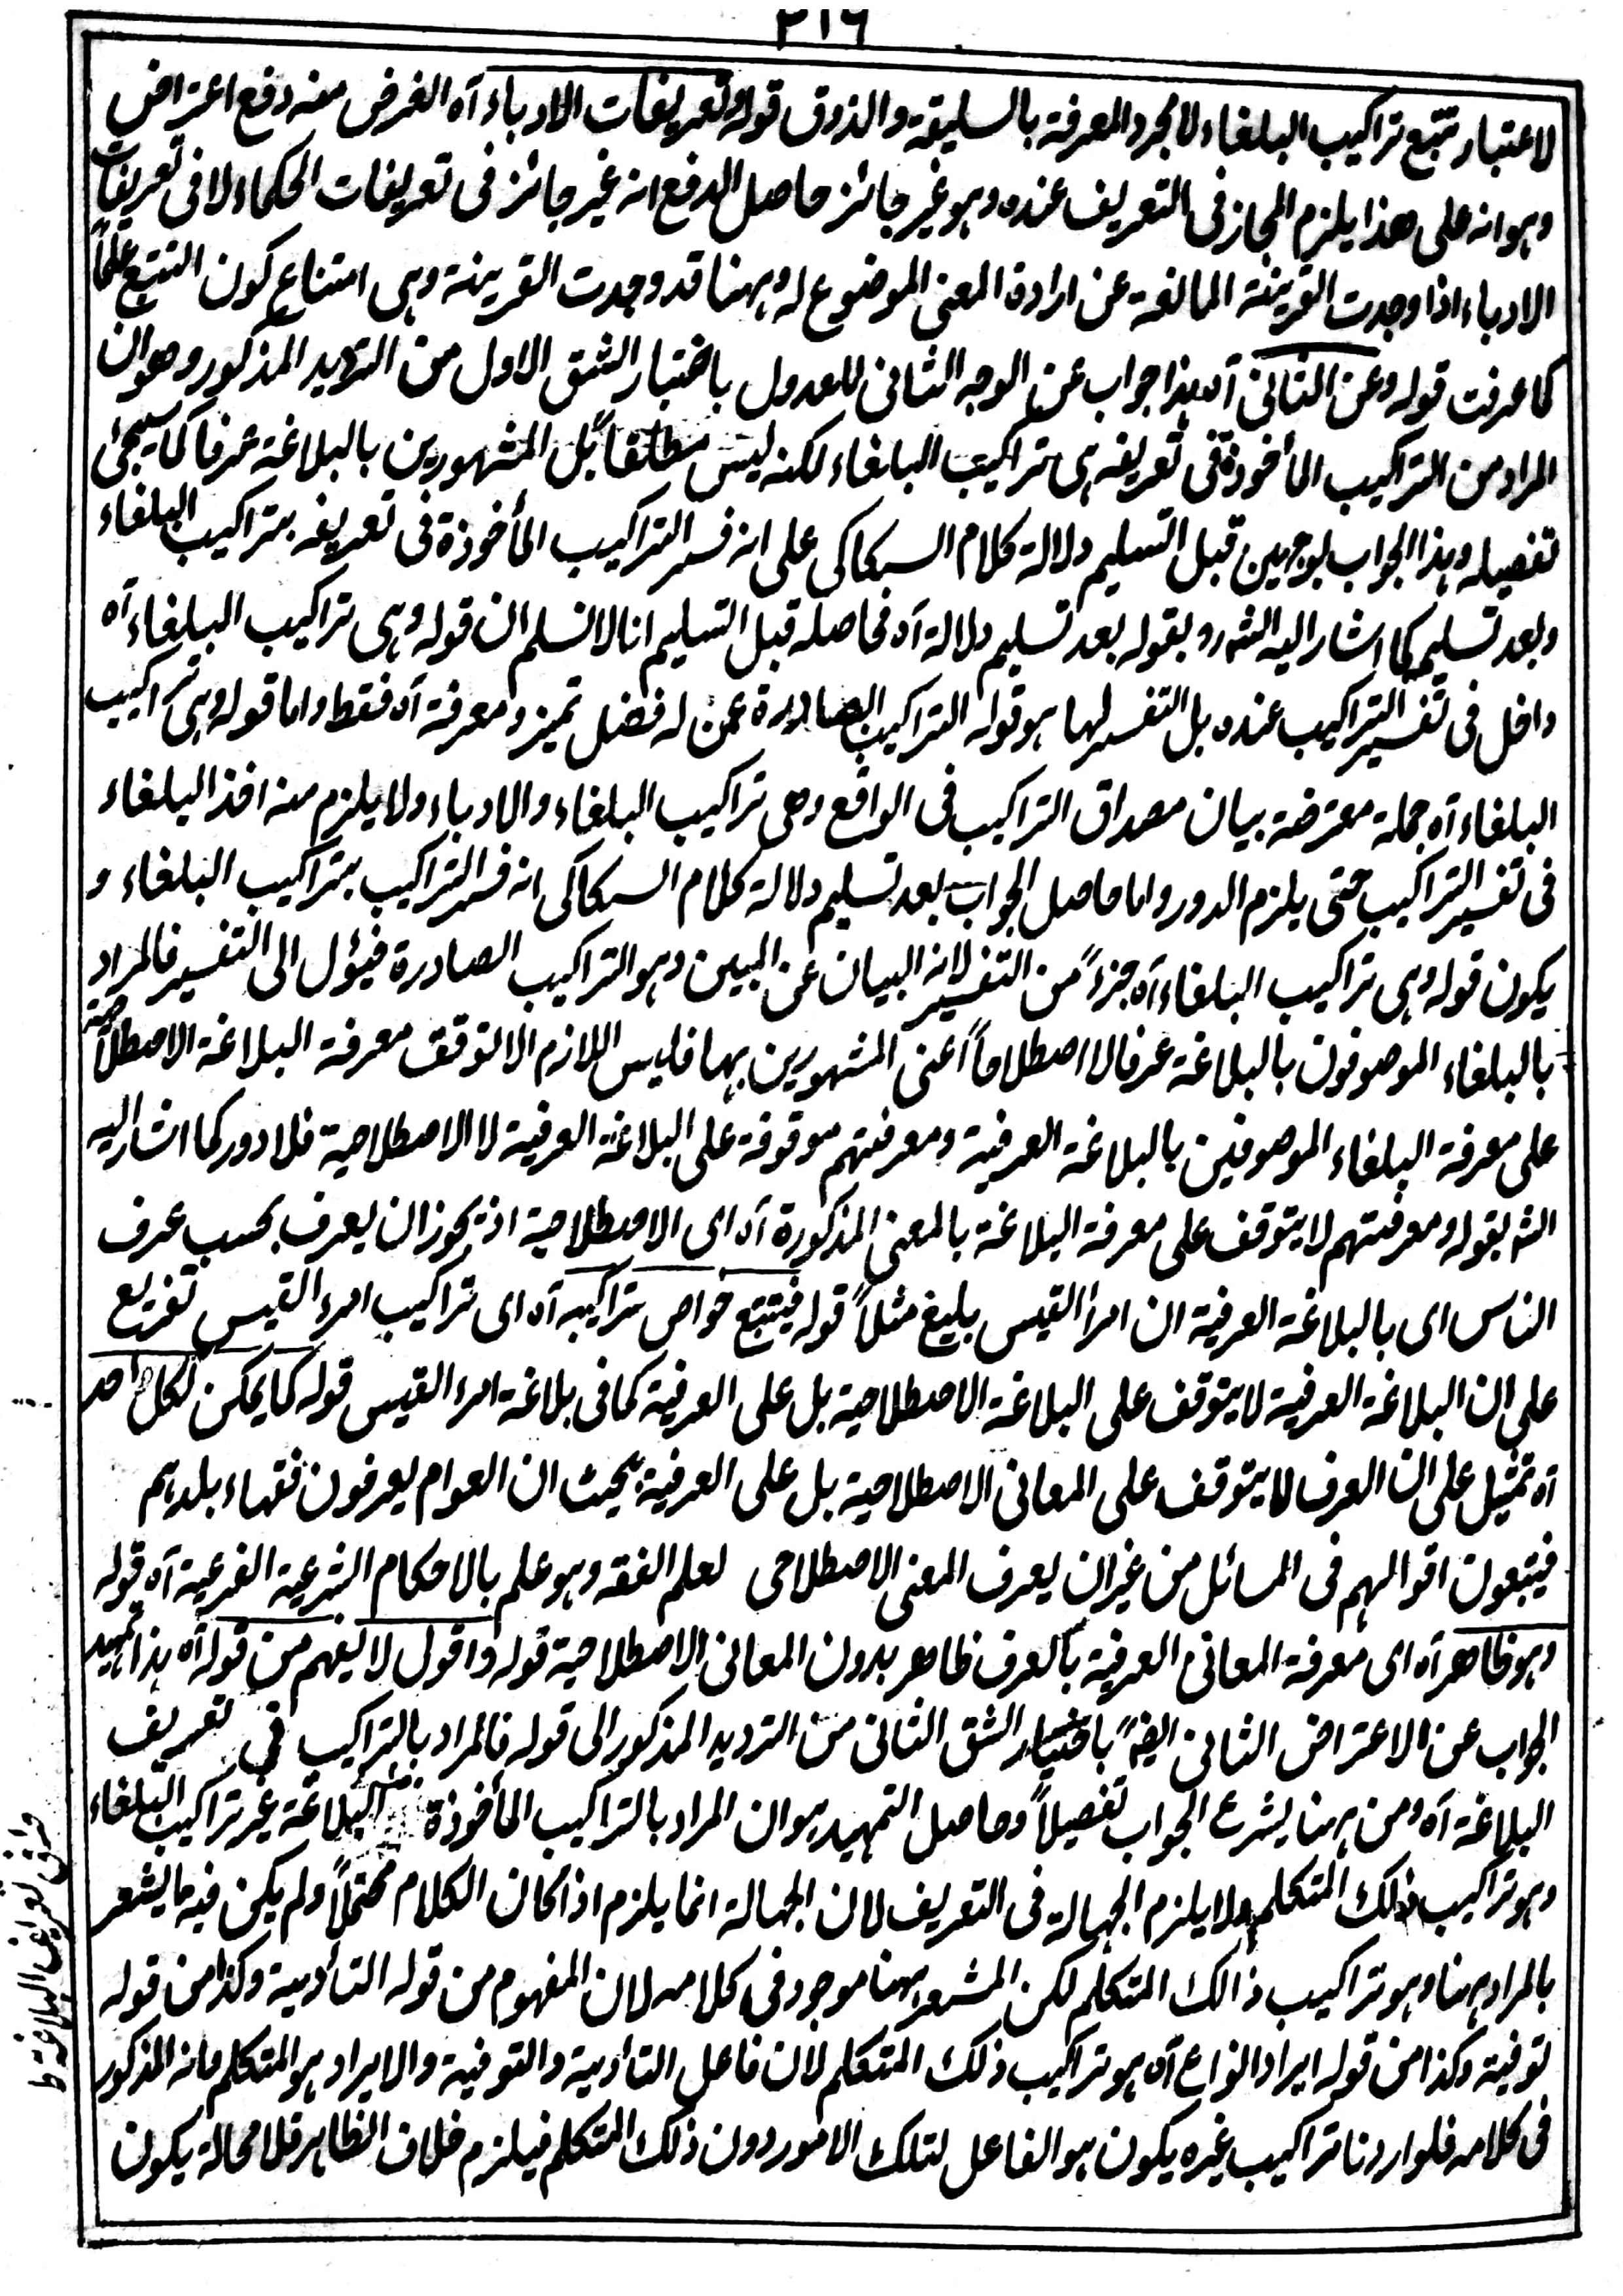 ٢١٦
لاعتبار تتبع تراكيب البلغاء لا مجرد المعرفة بالسليقة والذوق قوله وتعريفات الادباء آه الغرض منه دفع اعتراض
وہو انه على هذا يلزم المجاز فى التعريف عنده وہو غير جائز حاصل الدفع انه غير جائز فى تعريفات الحكماء لا فى تعريفات
الادباء اذا وجدت القرينة المانعة عن ارادة المعنى الموضوع له وہہنا قد وجدت القرينة وہى امتناع كون التتبع علماً
كما عرفت قوله وعن الثانى آه ہذا جواب عن الوجه الثانى للعدول باختيار الشق الاول من الترديد المذكور وهو ان
المراد من التراكيب المأخوذة فى تعريفه ہى تراكيب البلغاء لكنه ليس مطلقاً بل المشهورين بالبلاغة عرفا كما سيجئ
تفصيله وہذا الجواب بوجہين قبل التسليم دلالة كلام السكاكى على انه فسر التراكيب المأخوذة فى تعريفه بتراكيب البلغاء
وبعد تسليم كما اشار اليه الشہ رو بقوله بعد تسليم دلالة آه فحاصله قبل التسليم انا لا نسلم ان قوله وہى تراكيب البلغاء آه
داخل فى تفسير التراكيب عنده بل التفسير لها ہو قوله التراكيب الصادرة عمن له فضل تميز ومعرفة آه فقط واما قوله وہى تراكيب
البلغاء آه جملة معترضة بيان مصداق التراكيب فى الواقع وهى تراكيب البلغاء والادباء ولا يلزم منه اخذ البلغاء
فى تفسير التراكيب حتى يلزم الدور واما حاصل الجواب بعد تسليم دلالة كلام السكاكى انه فسر التراكيب بتراكيب البلغاء و
يكون قوله وہى تراكيب البلغاء آه جزءً من التفسير لانه البيان عن المبين وہو التراكيب الصادرة فيؤل الى التفسير فالمراد
بالبلغاء الموصوفون بالبلاغة عرفا لا اصطلاحاً اعنى المشهورين بہا فليس اللازم الا توقف معرفة البلاغة الاصطلاحية
على معرفة البلغاء الموصوفين بالبلاغة العرفية ومعرفتہم موقوفة على البلاغة العرفية لا الاصطلاحية فلا دور كما اشار اليه
الشہ بقوله ومعرفتهم لا يتوقف على معرفة البلاغة بالمعنى المذكورة آه اى الاصطلاحية اذ يجوز ان يعرف بحسب عرف
الناس اى بالبلاغة العرفية ان امرأ القيس بليغ مثلاً قوله فيتتبع خواص تراكيبه آه اى تراكيب امرء القيس تفريع
على ان البلاغة العرفية لا يتوقف على البلاغة الاصطلاحية بل على العرفية كما فى بلاغة امرء القيس قوله كما يمكن لكل احد
آه تمثيل على ان العرف لا يتوقف على المعانى الاصطلاحية بل على العرفية بحيث ان العوام يعرفون فقہاء بلدہم
فيتبعون اقوالہم فى المسائل من غير ان يعرف المعنى الاصطلاحى لعلم الفقه وہو علم بالاحكام الشرعية الفرعية آه قوله
وہو ظاهر آه اى معرفة المعانى العرفية بالعرف ظاهر بدون المعانى الاصطلاحية قوله واقول لا يفهم من قوله آه ہذا تمہيد
الجواب عن الاعتراض الثانى ايضاً باختيار الشق الثانى من الترديد المذكور الى قوله فالمراد بالتراكيب فى تعريف
البلاغة آه ومن ہہنا يشرع الجواب تفصيلاً وحاصل التمہيد ہو ان المراد بالتراكيب المأخوذة البلاغة غير تراكيب البلغاء
وہو تراكيب ذلك المتكلم ولا يلزم الجہالة فى التعريف لان الجہالة انما يلزم اذا كان الكلام محتملاً ولم يكن فيه ما يشعر
بالمراد ہہنا وہو تراكيب ذالك المتكلم لكن المشعر ہہنا موجود فى كلامہ لان المفہوم من قوله التأدية وكذا من قوله
توفية وكذا من قوله ايراد انواع آه ہو تراكيب ذلك المتكلم لان فاعل التأدية والتوفية والايراد ہو المتكلم فانه المذكور
فى كلامہ فلو اردنا تراكيب غيره يكون ہو الفاعل لتلك الامور دون ذلك المتكلم فيلزم خلاف الظاہر فلا محالة يكون